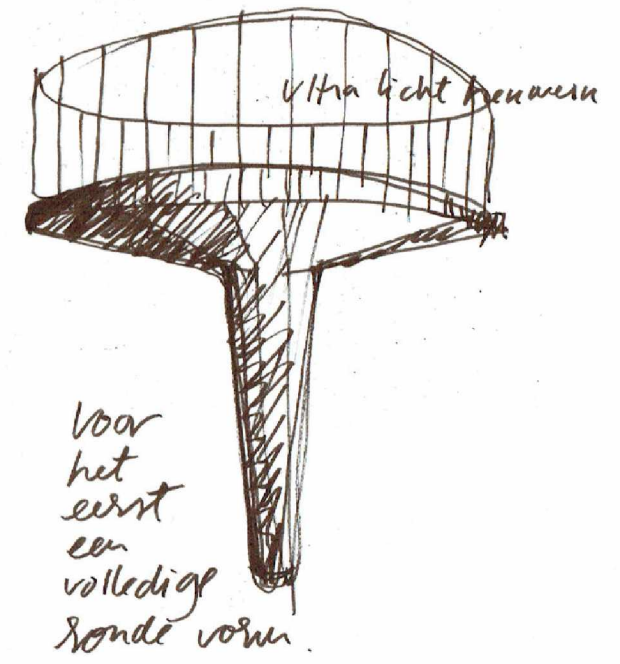 ultra licht hekwerk
voor
het
eerst
een
volledige
ronde vorm.